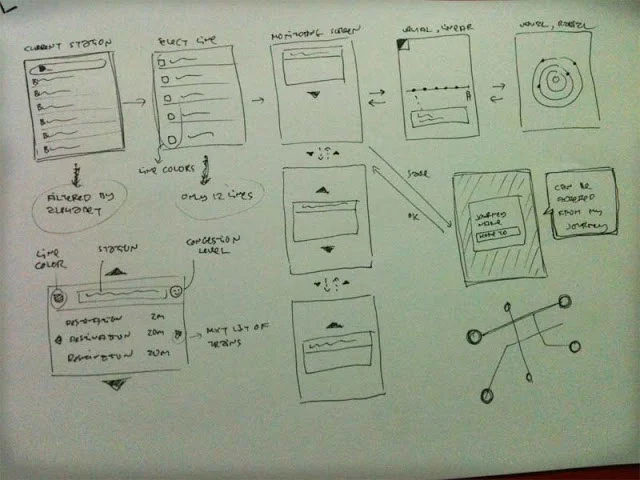 CURRENT STATION
SELECT LINE
MONITORING SCREEN
VISUAL, LINEAR
VISUAL, RADIAL
LINE COLORS
FILTERED BY
ALPHABET
ONLY 12 LINES
SAVE
OK
JOURNEY
NAME
HOME TO
CAN BE
ACCESSED
FROM MY
JOURNEY
LINE
COLOR
STATION
CONGESTION
LEVEL
DESTINATION 2M
DESTINATION 20M
DESTINATION 20M
NEXT LIST OF
TRAINS